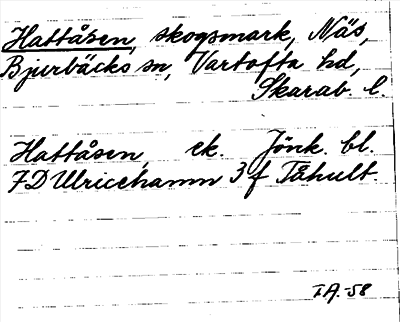 Hattåsen, skogsmark, Näs,
Bjurbäcks sn, Vartofta hd,
Skarab. l.
Hattåsen, ek. Jönk. bl.
7D Ulricehamn 3 f Tåhult.
I.A.-58